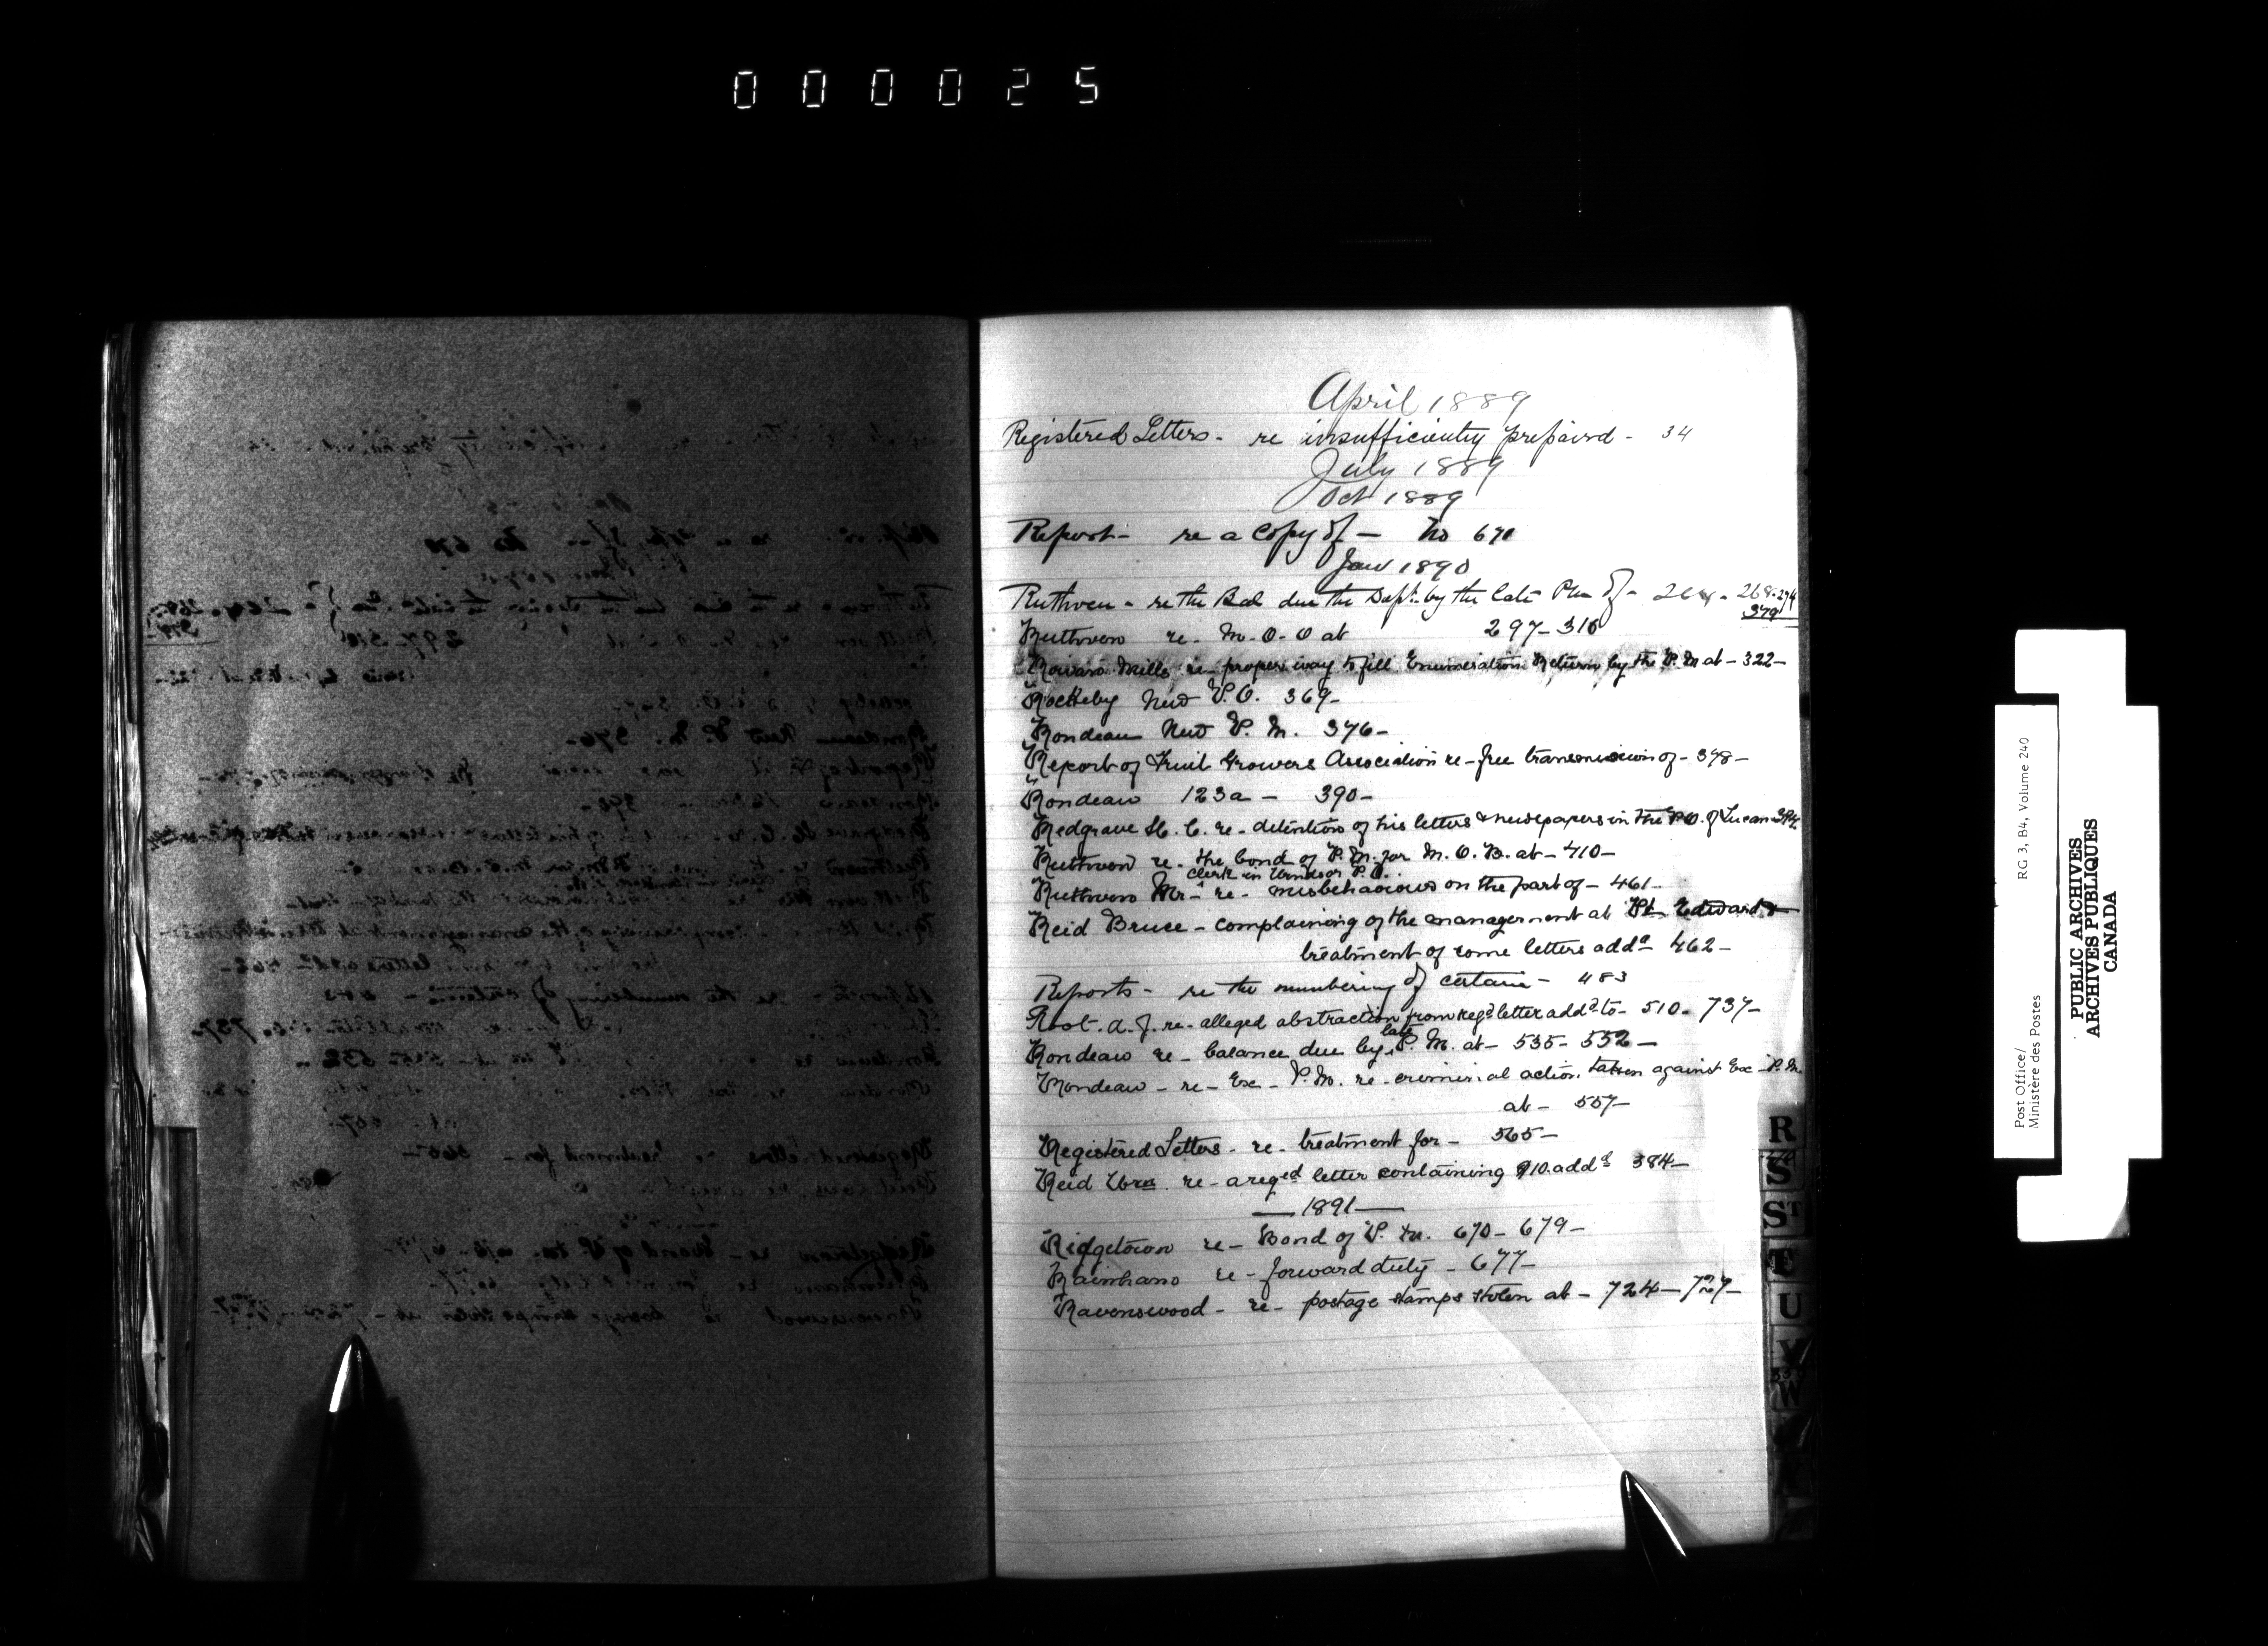 000025
April 1889
Registered Letters - re insufficiently prepaid - 34
July 1889
Oct 1889
Report - re a Copy of - No 670
Jan 1890
Ruthven - re the Bal due the Dept. by the late PM of - 264 - 268 - 294
379
Ruthven re - M.O.O at 297 - 316
Mills re - proper way to fill Enumeration Return by the P.M at - 322 -
Rokeby New P.O. 369 -
Rondeau New P.M. 376 -
Report of Fruit Growers Association re - free transmission of - 378 -
Rondeau 123a - 390 -
Redgrave H.C. re - detention of his letters & newspapers in the P.O. of Lucan - 394
Ruthven re - the bond of P.M. for M.O.B. at - 410 -
clerk in Windsor P.O.
Ruthven Mr - re - misbehaviour on the part of - 461 -
Reid Bruce - complaining of the management at Pt Edward &
treatment of some letters addd - 462 -
Reports - re the numbering of certain - 483
Root. A.J. re - alleged abstraction from regd letter addd to - 510 - 737 -
late
Rondeau re - balance due by P.M. at - 535 - 552 -
Rondeau - re - Exc - P.M. re - criminal action taken against Exc - P.M.
at - 557 -
Registered Letters - re - treatment for - 565 -
Reid re - a reged letter containing $10. addd 384 -
1891
Ridgetown re - Bond of P.M. 670 - 679 -
Rainham re - forward duty - 677 -
Ravenswood - re - postage stamps stolen at - 724 - 727 -
R
S
ST
T
U
V
W
Post Office/
Ministère des Postes
RG 3, B4, Volume 240
PUBLIC ARCHIVES
ARCHIVES PUBLIQUES
CANADA